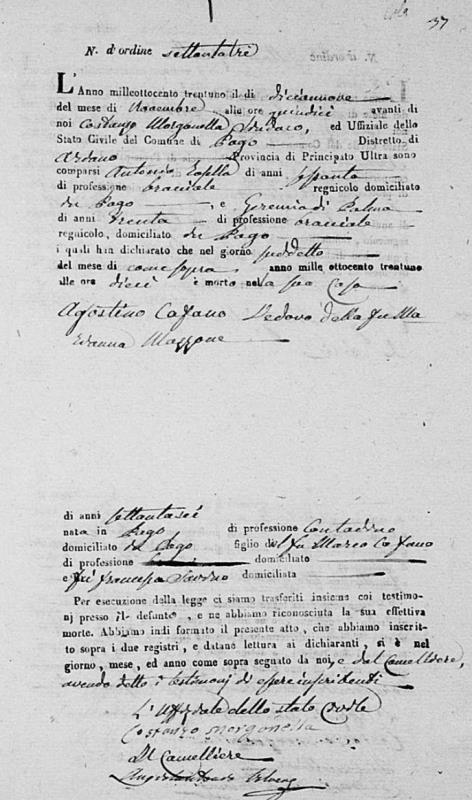 37
N. d'ordine settantatrè
L'Anno milleottocento trentuno il di diciannove
del mese di Novembre alle ore quindici avanti di
noi Costanzo Morganella Sindaco, ed Uffiziale dello
Stato Civile del Comune di Pago Distretto di
Ariano Provincia di Principato Ultra sono
comparsi Antonio di anni
di professione bracciale regnicolo domiciliato
in Pago , e Geremia di Palma
di anni trenta di professione bracciale
regnicolo, domiciliato in Pago
i quali han dichiarato che nel giorno suddetto
del mese di come sopra anno mille ottocento trentuno
alle ore dieci è morto nella sua Casa
Agostino Cafano Vedovo della fu Ma
rianna Mazzone
di anni settantasei
nata in Pago di professione Contadino
domiciliato in Pago figlio del fu Marco Cafano
di professione domiciliato
e fu Francesca domiciliata
Per esecuzione della legge ci siamo trasferiti insieme coi testimo-
nj presso il defunto , e ne abbiamo riconosciuta la sua effettiva
morte. Abbiamo indi formato il presente atto, che abbiamo inscrit-
to sopra i due registri, e datane lettura ai dichiaranti, si è nel
giorno, mese, ed anno come sopra segnato da noi, e dal Cancelliere,
avendo detto i testimonj di essere
L'Uffiziale dello stato Civile
Costanzo Morganella
Il Cancelliere